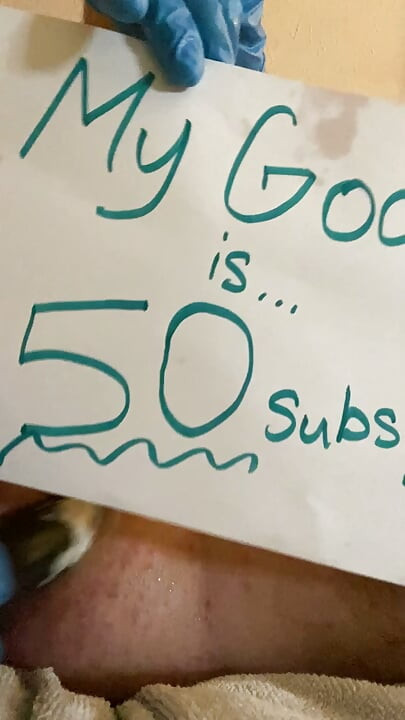 My Goo
is...
50 subs